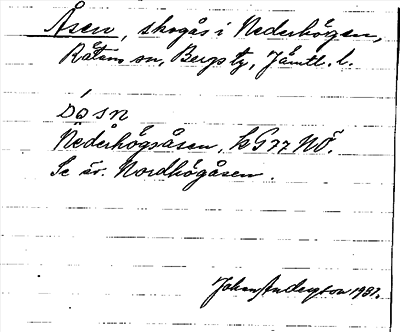 Åsen, skogås i Nederhögen,
Råtans sn, Bergs tg, Jämtl. l.
Nederhögsåsen, kG77 NÖ.
Se äv. Nordhögåsen.
Johan Anderson 1931.